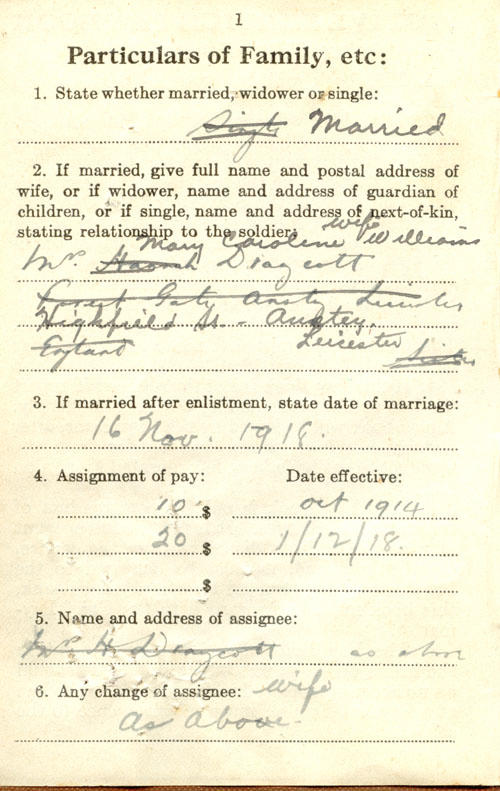 1
Particulars of Family, etc:
1. State whether married, widower or single:
Single Married
2. If married, give full name and postal address of
wife, or if widower, name and address of guardian of
children, or if single, name and address of next-of-kin,
stating relationship to the soldier: wife
Mary Caroline Williams
Mrs. Hannah Draycott
Forest Gate Ansty Leicester
Highfield St - Anstey,
England Leicester Sister
3. If married after enlistment, state date of marriage:
16 Nov. 1918.
4. Assignment of pay: Date effective:
10 $ Oct 1914
20 $ 1/12/18.
$
5. Name and address of assignee:
Mrs. H. Draycott as above
6. Any change of assignee: wife
As Above